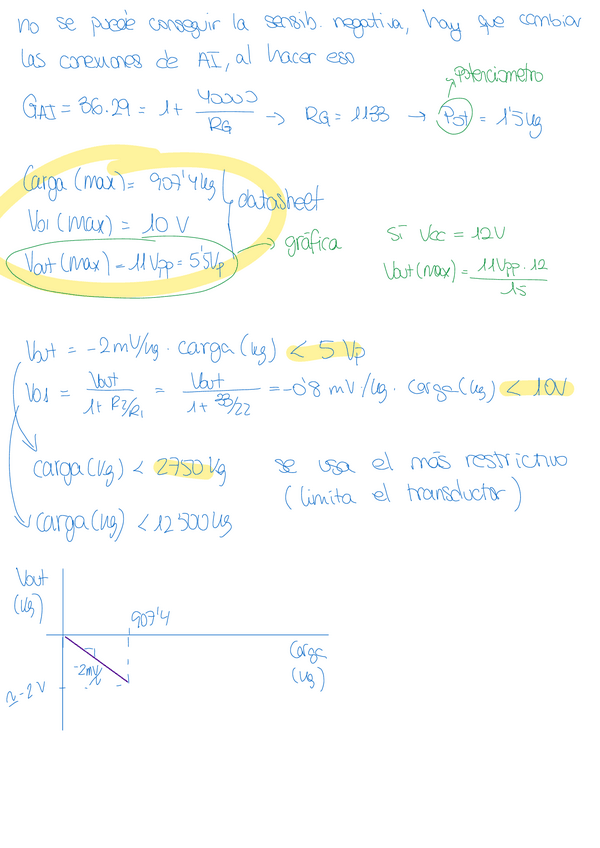 no se puede conseguir la sensib. negativa, hay que cambiar
las conexiones de AI, al hacer eso
potenciometro
GAI = 36.29 = 1 + 40000/RG → RG = 1133 → Pot = 1'5 kg
Carga (max) = 907'4 kg
datasheet
Vo1 (max) = 10 V
Vout (max) = 11 Vpp = 5'5 Vp → gráfica
Si Vcc = 12V
Vout (max) = 11Vpp · 12 / 15
Vout = -2 mV/kg · carga (kg) < 5 Vp
Vo1 = Vout / 1 + R2/R1 = Vout / 1 + 33/22 = -0'8 mV/kg · carga (kg) < 10V
carga (kg) < 2750 kg
se usa el más restrictivo
(limita el transductor)
carga (kg) < 12500 kg
Vout
(kg)
907'4
Carga
(kg)
-2mV/
≈ -2 V